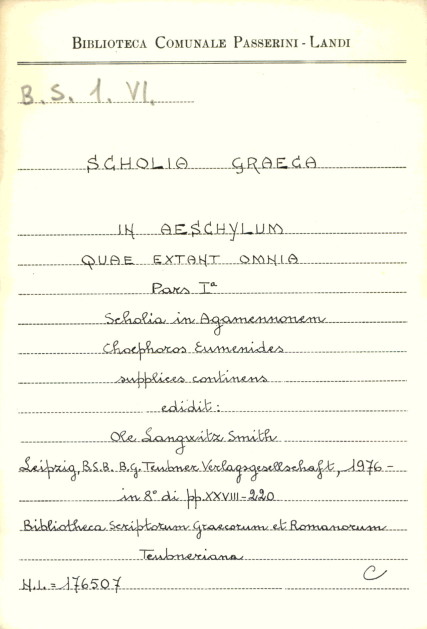 BIBLIOTECA COMUNALE PASSERINI - LANDI
B.S. 1. VI.
SCHOLIA GRAECA
IN AESCHYLUM
QUAE EXTANT OMNIA
Pars Iª
Scholia in Agamennonem
Choephoros Eumenides
supplices continens
edidit:
Ole Langwitz Smith
Leipzig, B.S.B. B.G. Teubner Verlagsgesellschaft, 1976 -
in 8° di pp. XXVIII-220
Bibliotheca Scriptorum Graecorum et Romanorum
Teubneriana
C
N.I. = 176507